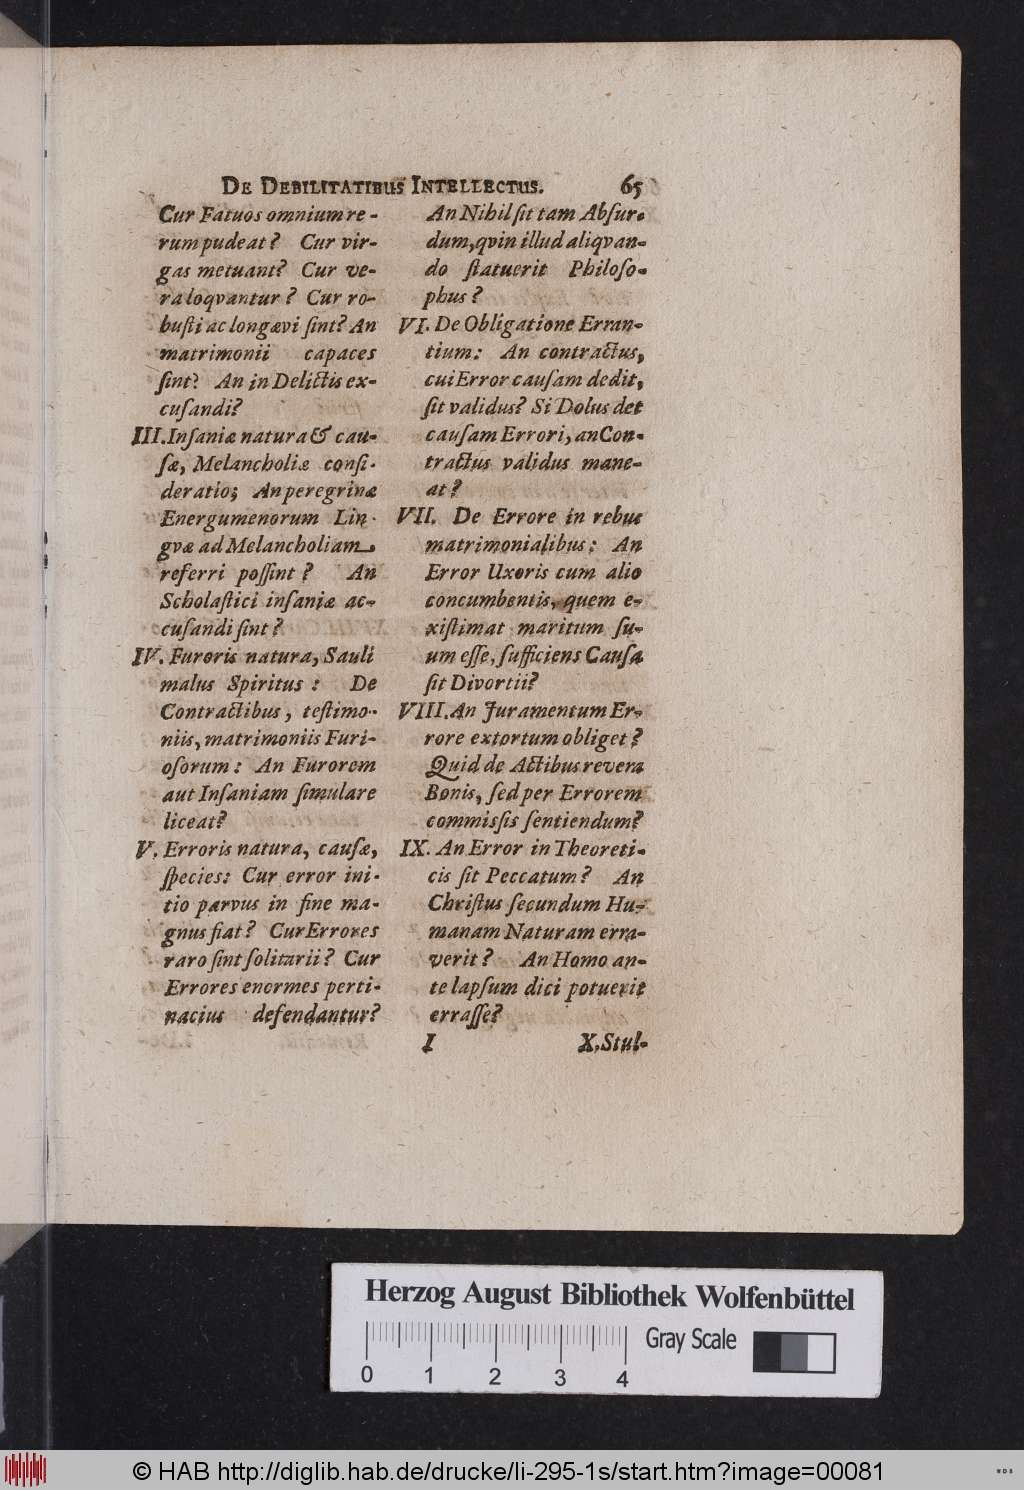 DE DEBILITATIBUS INTELLECTUS. 65
Cur Fatuos omnium re-
rum pudeat? Cur vir-
gas metuant? Cur ve-
ra loqvantur? Cur ro-
busti ac longævi sint? An
matrimonii capaces
sint? An in Delictis ex-
cusandi?
III. Insaniæ natura & cau-
sæ, Melancholiæ consi-
deratio; An peregrinæ
Energumenorum Lin-
gvæ ad Melancholiam
referri possint? An
Scholastici insaniæ ac-
cusandi sint?
IV. Furoris natura, Sauli
malus Spiritus: De
Contractibus, testimo-
niis, matrimoniis Furi-
osorum: An Furorem
aut Insaniam simulare
liceat?
V. Erroris natura, causæ,
species: Cur error ini-
tio parvus in fine ma-
gnus fiat? Cur Errores
raro sint solitarii? Cur
Errores enormes perti-
nacius defendantur?
An Nihil sit tam Absur-
dum, qvin illud aliqvan-
do statuerit Philoso-
phus?
VI. De Obligatione Erran-
tium: An contractus,
cui Error causam dedit,
sit validus? Si Dolus det
causam Errori, an Con-
tractus validus mane-
at?
VII. De Errore in rebus
matrimonialibus: An
Error Uxoris cum alio
concumbentis, quem e-
xistimat maritum su-
um esse, sufficiens Causa
sit Divortii?
VIII. An Juramentum Er-
rore extortum obliget?
Quid de Actibus revera
Bonis, sed per Errorem
commissis sentiendum?
IX. An Error in Theoreti-
cis sit Peccatum? An
Christus secundum Hu-
manam Naturam erra-
verit? An Homo an-
te lapsum dici potuerit
errasse?
I X. Stul-
Herzog August Bibliothek Wolfenbüttel
Gray Scale
0 1 2 3 4
© HAB http://diglib.hab.de/drucke/li-295-1s/start.htm?image=00081